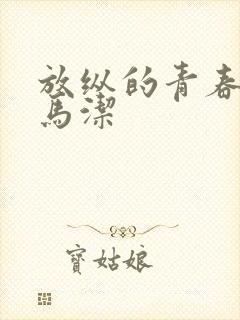 放纵的青春
馬潔
寶姑娘